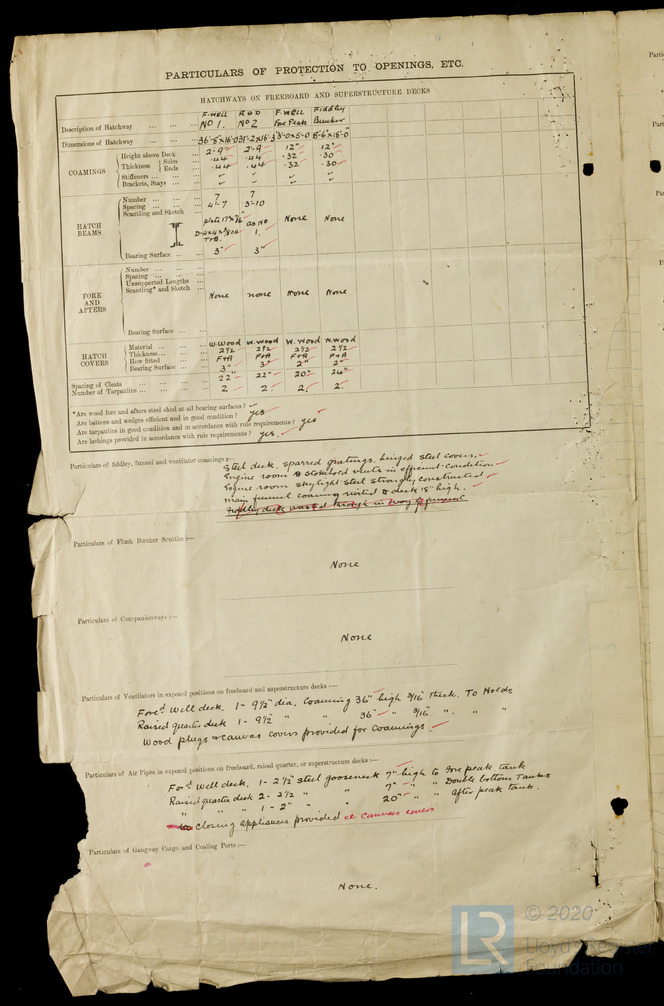 PARTICULARS OF PROTECTION TO OPENINGS, ETC.
HATCHWAYS ON FREEBOARD AND SUPERSTRUCTURE DECKS
Description of Hatchway ... ... ... F. WELL NO 1. R Q D NO 2 F. WELL Fore Peak Fiddley Bunker
Dimensions of Hatchway ... ... ... 36'-8"x16'-0 31'-2x16'-3 3'-0x5'-0 8'-6"x18'-0"
COAMINGS
Height above Deck ... 2'-9" 2'-9" 12" 12"
Thickness Sides ... .44 .44 .32 .30
Ends ... .44 .44 .32 .30
Stiffeners ... ...
Brackets, Stays ... ...
HATCH BEAMS
Number ... ... ... 7 7
Spacing ... ... ... 4'-7 3'-10
Scantling and Sketch ... None None
as No 1.
Bearing Surface ... ... 3" 3"
FORE AND AFTERS
Number ... ... ...
Spacing ... ... ...
Unsupported Lengths ...
Scantling* and Sketch ... None None None None
Bearing Surface ... ...
HATCH COVERS
Material ... ... ... W. Wood W. Wood W. Wood W. Wood
Thickness ... ... 2½ 2½ 2½ 2½
How fitted ... ... F+A F+A F+A F+A
Bearing Surface ... 3" 3" 2" 2"
Spacing of Cleats ... ... ... 22" 22" 20" 24"
Number of Tarpaulins ... ... ... 2 2. 2. 2.
*Are wood fore and afters steel shod at all bearing surfaces?
Are battens and wedges efficient and in good condition? yes
Are tarpaulins in good condition and in accordance with rule requirements? yes
Are lashings provided in accordance with rule requirements? yes.
Particulars of fiddley, funnel and ventilator coamings:—
Steel deck, sparred gratings, hinged steel covers,
Engine room & stokehold vents in efficient condition
Engine room skylight steel strongly constructed
main funnel coaming riveted to deck 15" high.
Particulars of Flush Bunker Scuttles:—
None
Particulars of Companionways:—
None
Particulars of Ventilators in exposed positions on freeboard and superstructure decks:—
Fore'd Well deck. 1- 9½" dia. Coaming 36" high 3/16 thick. To Holds
Raised quarter deck 1- 9½ " " 36" " 3/16 ". " "
Wood plugs & canvas covers provided for Coamings.
Particulars of Air Pipes in exposed positions on freeboard, raised quarter, or superstructure decks:—
For'd Well deck. 1- 2½" steel gooseneck 7" high to Fore peak tank
Raised quarter deck 2- 2½ " " 7" " " Double bottom Tanks
" " " 1- 2" " " 20" " " after peak tank.
closing appliances provided ie canvas covers
Particulars of Gangway Cargo and Coaling Ports:—
None.
LR
© 2020
Lloyd's Register
Foundation